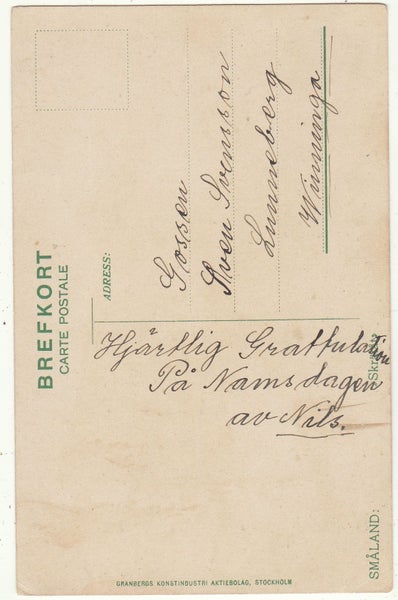 BREFKORT
CARTE POSTALE
ADRESS:
Gossen
Sven Svensson
Lunneberg
Winninga
Hjärtlig Grattulation
På Namsdagen
av Nils.
SMÅLAND:
GRANBERGS KONSTINDUSTRI AKTIEBOLAG, STOCKHOLM